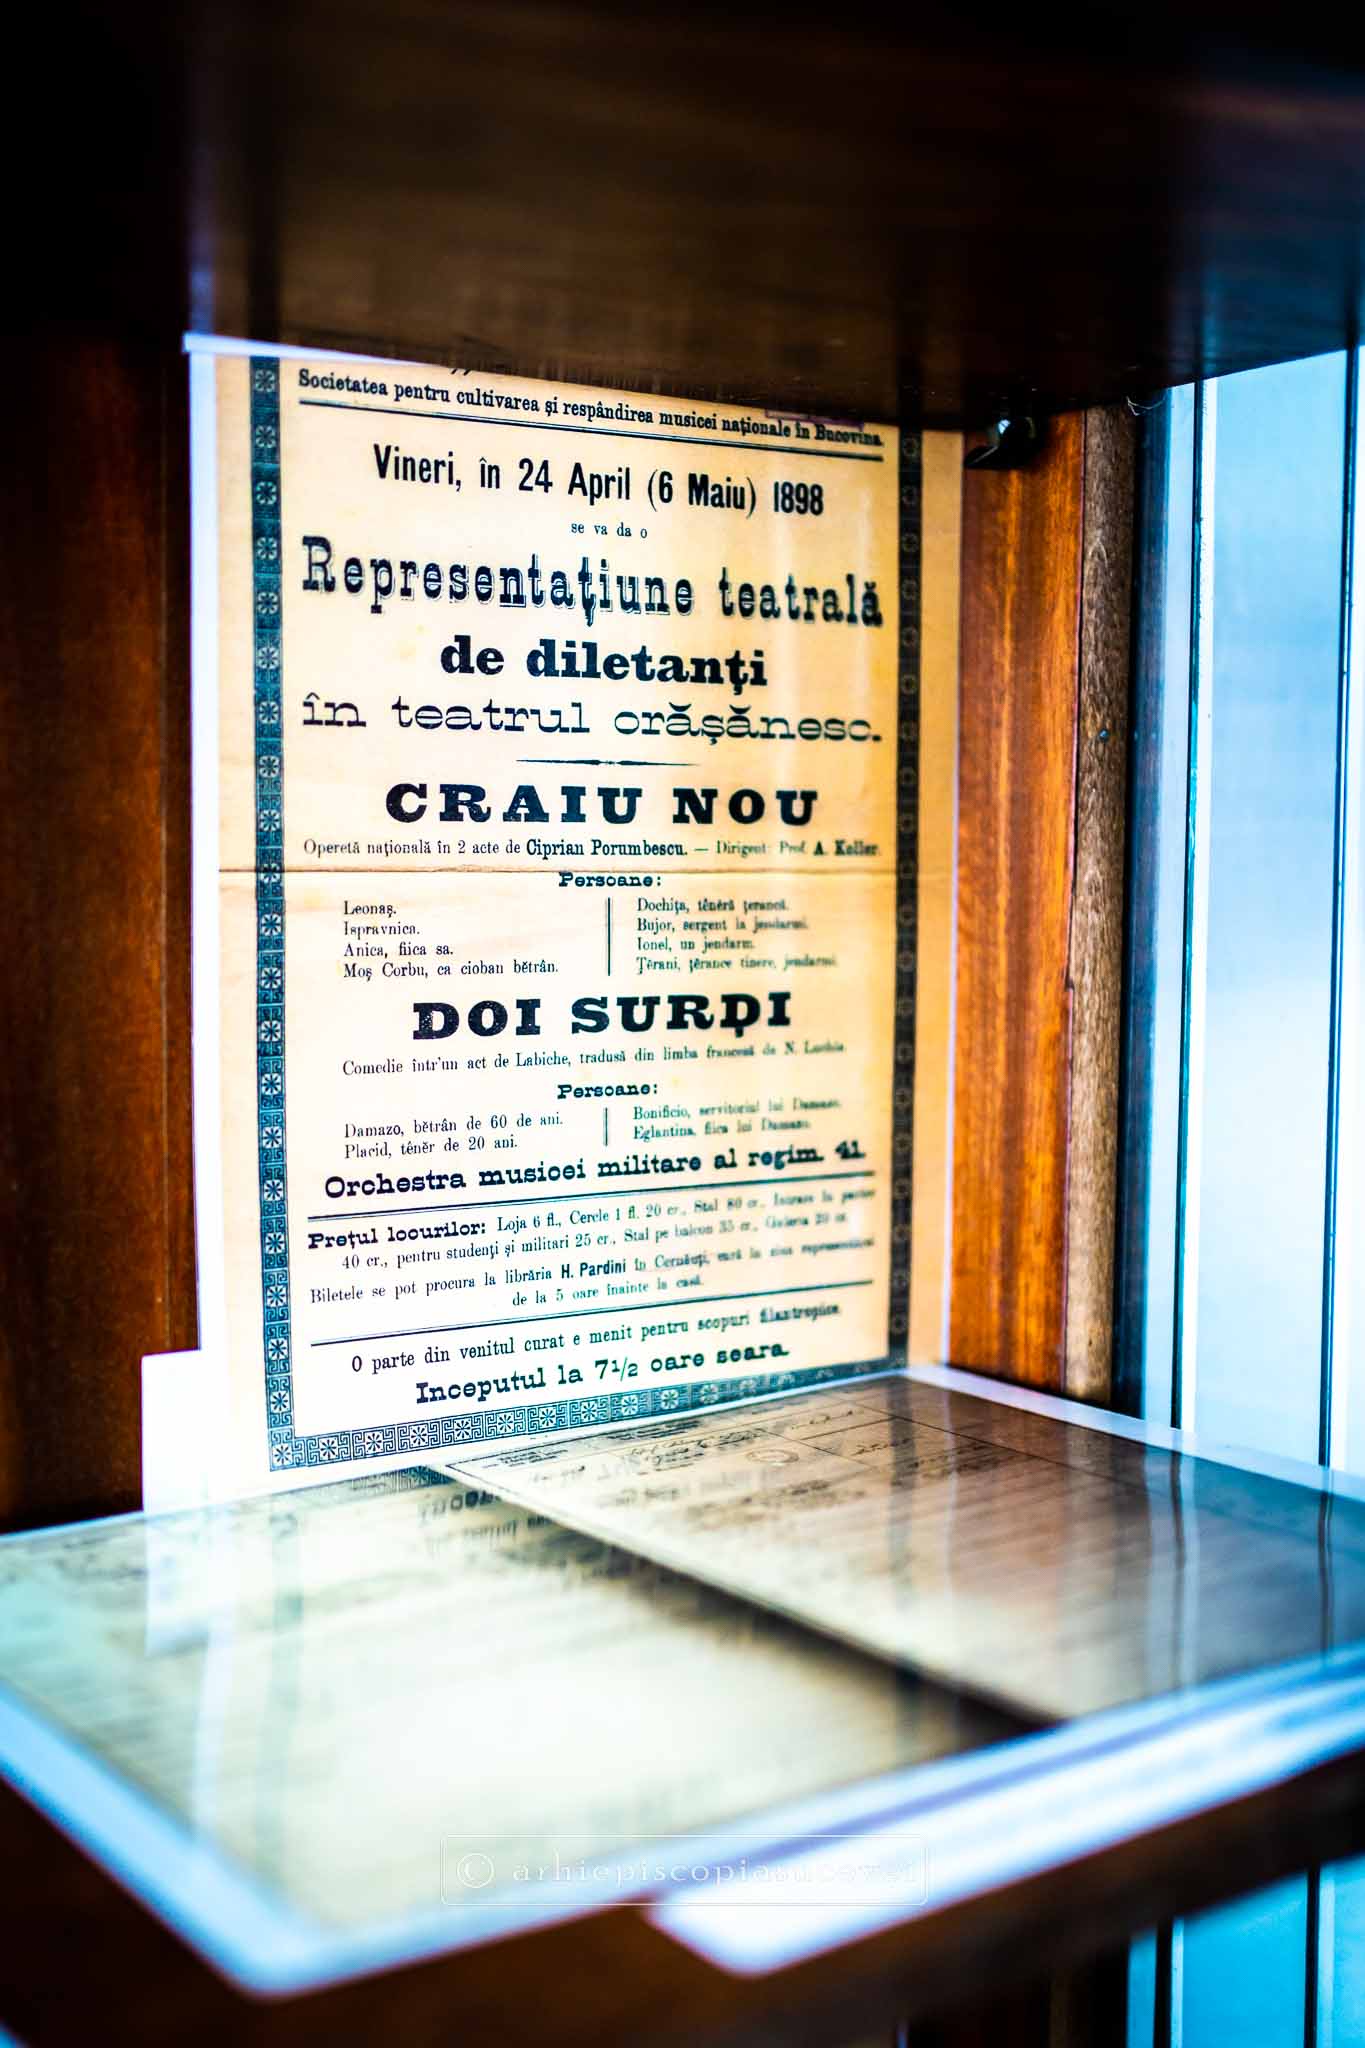 Societatea pentru cultivarea și respândirea musicei naționale în Bucovina.
Vineri, în 24 April (6 Maiu) 1898
se va da o
Representațiune teatrală
de diletanți
în teatrul orășănesc.
CRAIU NOU
Operetă națională în 2 acte de Ciprian Porumbescu. — Dirigent: Prof. A. Koller.
Persoane:
Leonaș.
Ispravnica.
Anica, fiica sa.
Moș Corbu, ca cioban bĕtrân.
Dochița, tênĕră țerancă.
Bujor, sergent la jendarmi.
Ionel, un jendarm.
Țĕrani, țĕrance tinere, jendarmi.
DOI SURḐI
Comedie într'un act de Labiche, tradusă din limba francesă de N.
Persoane:
Damazo, bĕtrân de 60 de ani.
Placid, tênĕr de 20 ani.
Bonificio, servitorul lui Damazo.
Eglantina, fiica lui Damazo.
Orchestra musicei militare al regim. 41.
Prețul locurilor: Loja 6 fl., Cercle 1 fl. 20 cr., Stal 80 cr., Intrare la parter
40 cr., pentru studenți și militari 25 cr., Stal pe balcon 35 cr., Galeria 20 cr.
Biletele se pot procura la librăria H. Pardini în Cernăuți, eară la ziua representării
de la 5 oare înainte la casă.
O parte din venitul curat e menit pentru scopuri filantropice.
Inceputul la 7 1/2 oare seara.
© arhiepiscopiasucevei